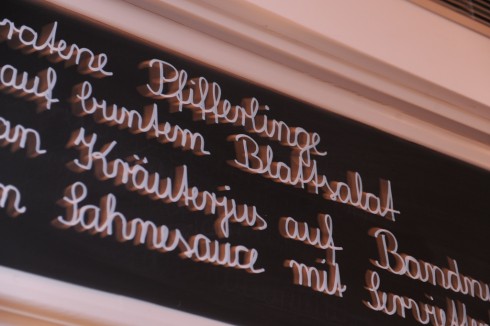 ratene Pfifferlinge
auf buntem Blattsalat
an Kräuterjus auf Bandnu
n Sahnesauce mit Serviette